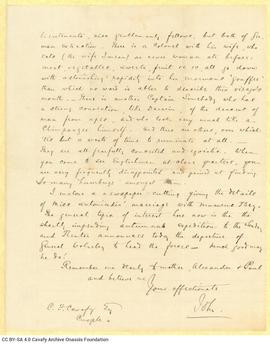 lieutenants, nice gentlemanly fellows, but both of
man extraction. There is a Colonel with his wife, who
eats (the wife I mean) as never woman ate before:
meat, vegetables, sweets, fruit or no all go down
with astonishing rapidity into her enormous "gouffre"
than which no word is able to describe this
mouth. There is another Captain Somebody who has
a strong conviction, like Darwin, of the descent of
man from apes, and who looks very much like a
Chimpanzee himself. And there are others, over which
'tis but a waste of time to ruminate at all.
They are all frightfully conceited and egoistic. When
you come to see Englishmen at close quarters, you
are very frequently disappointed and pained at finding
so many humbugs amongst
I enclose a newspaper cutting giving the details
of Miss Antoniadis' marriage with Monsieur
The general topic of interest here now is the
shortly impending autumnal expedition to the
and Reuter announces today the departure of
General Wolseley to lead the forces. Send God may
he do!
Remember me dearly to mother, Alexander & Paul
and believe me
Yours affectionate
John
C. F. Cavafy Esq
Cople
CC BY-SA 4.0 Cavafy Archive Onassis Foundation